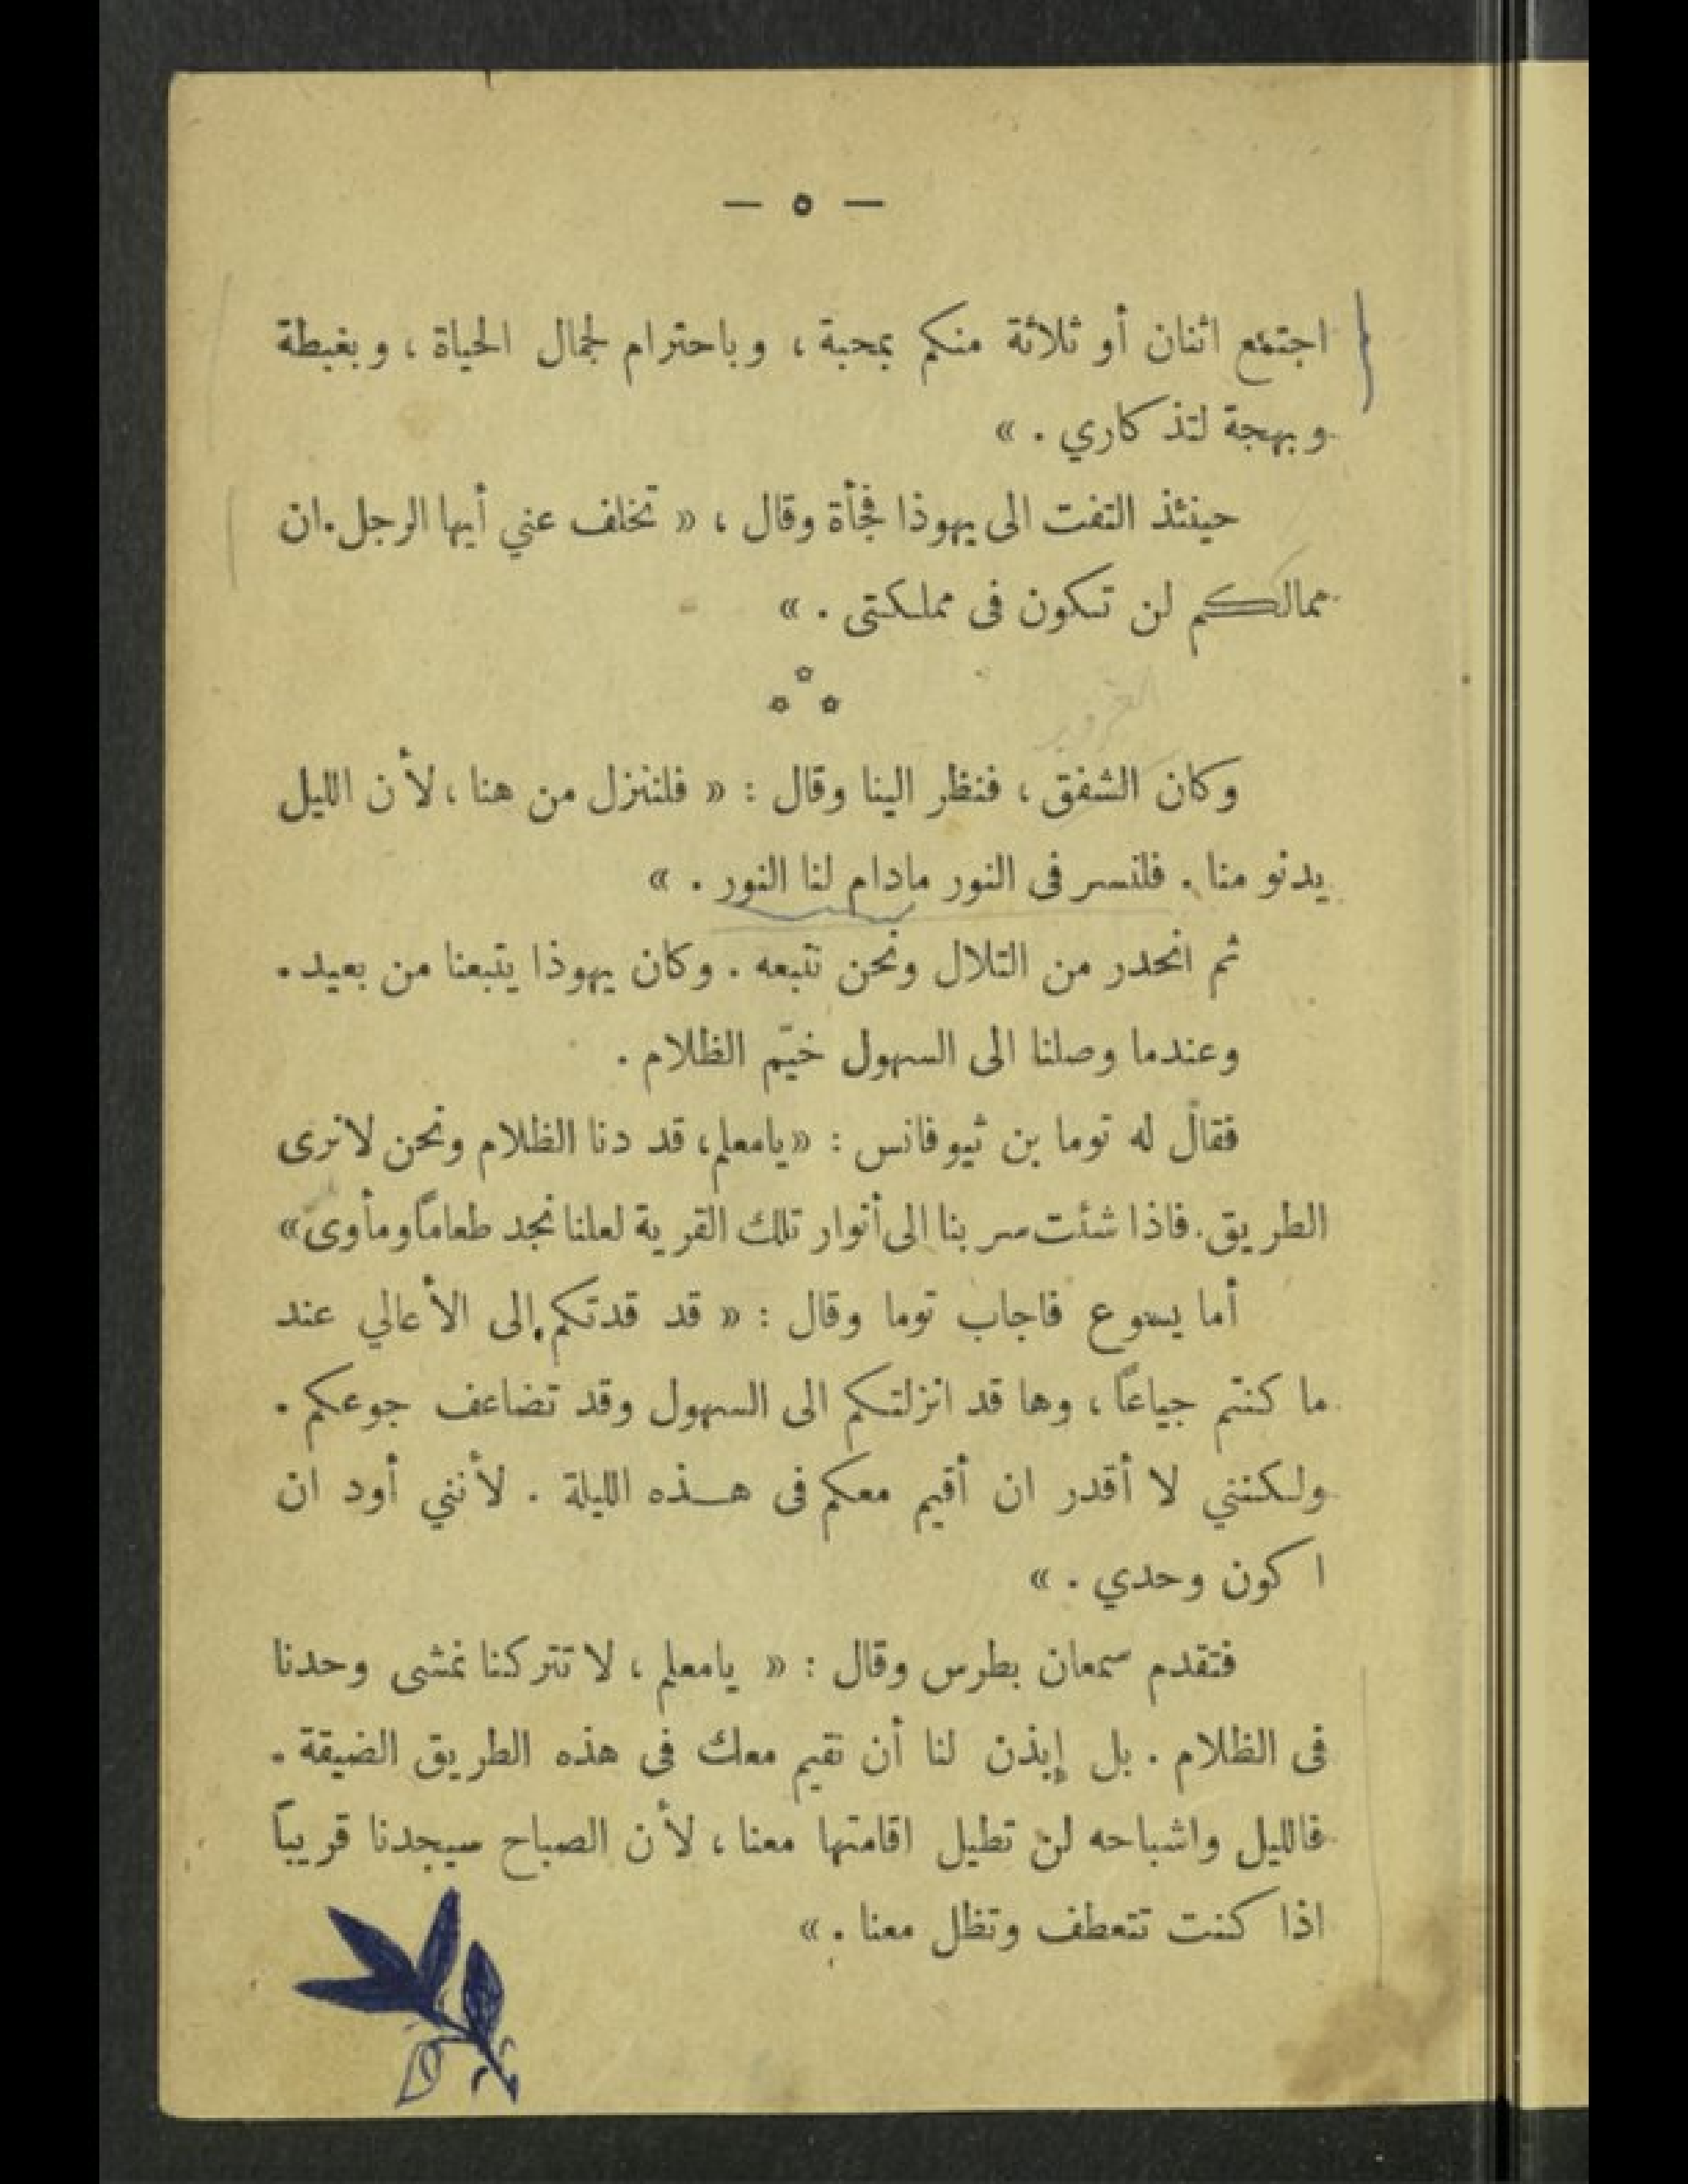 — ٥ —
اجتمع اثنان أو ثلاثة منكم بمحبة ، وباحترام لجمال الحياة ، وبغبطة
وبهجة لتذكاري . »
حينئذ التفت الى يهوذا فجأة وقال ، « تخلف عني أيها الرجل . ان
ممالككم لن تكون فى مملكتى . »
الغروب
وكان الشفق ، فنظر الينا وقال : « فلننزل من هنا ، لأن الليل
يدنو منا . فلنسر فى النور مادام لنا النور . »
ثم انحدر من التلال ونحن نتبعه . وكان يهوذا يتبعنا من بعيد .
وعندما وصلنا الى السهول خيّم الظلام .
فقال له توما بن ثيوفانس : « يامعلم ، قد دنا الظلام ونحن لانرى
الطريق . فاذا شئت سر بنا الى أنوار تلك القرية لعلنا نجد طعاماً ومأوى »
أما يسوع فاجاب توما وقال : « قد قدتكم الى الأعالي عند
ما كنتم جياعاً ، وها قد انزلتكم الى السهول وقد تضاعف جوعكم .
ولكنني لا أقدر ان أقيم معكم فى هــذه الليلة . لأنني أود ان
اكون وحدي . »
فتقدم سمعان بطرس وقال : « يامعلم ، لا تتركنا نمشى وحدنا
فى الظلام . بل إيذن لنا أن نقيم معك فى هذه الطريق الضيقة .
فالليل واشباحه لن تطيل اقامتها معنا ، لأن الصباح سيجدنا قريباً
اذا كنت تتعطف وتظل معنا . »